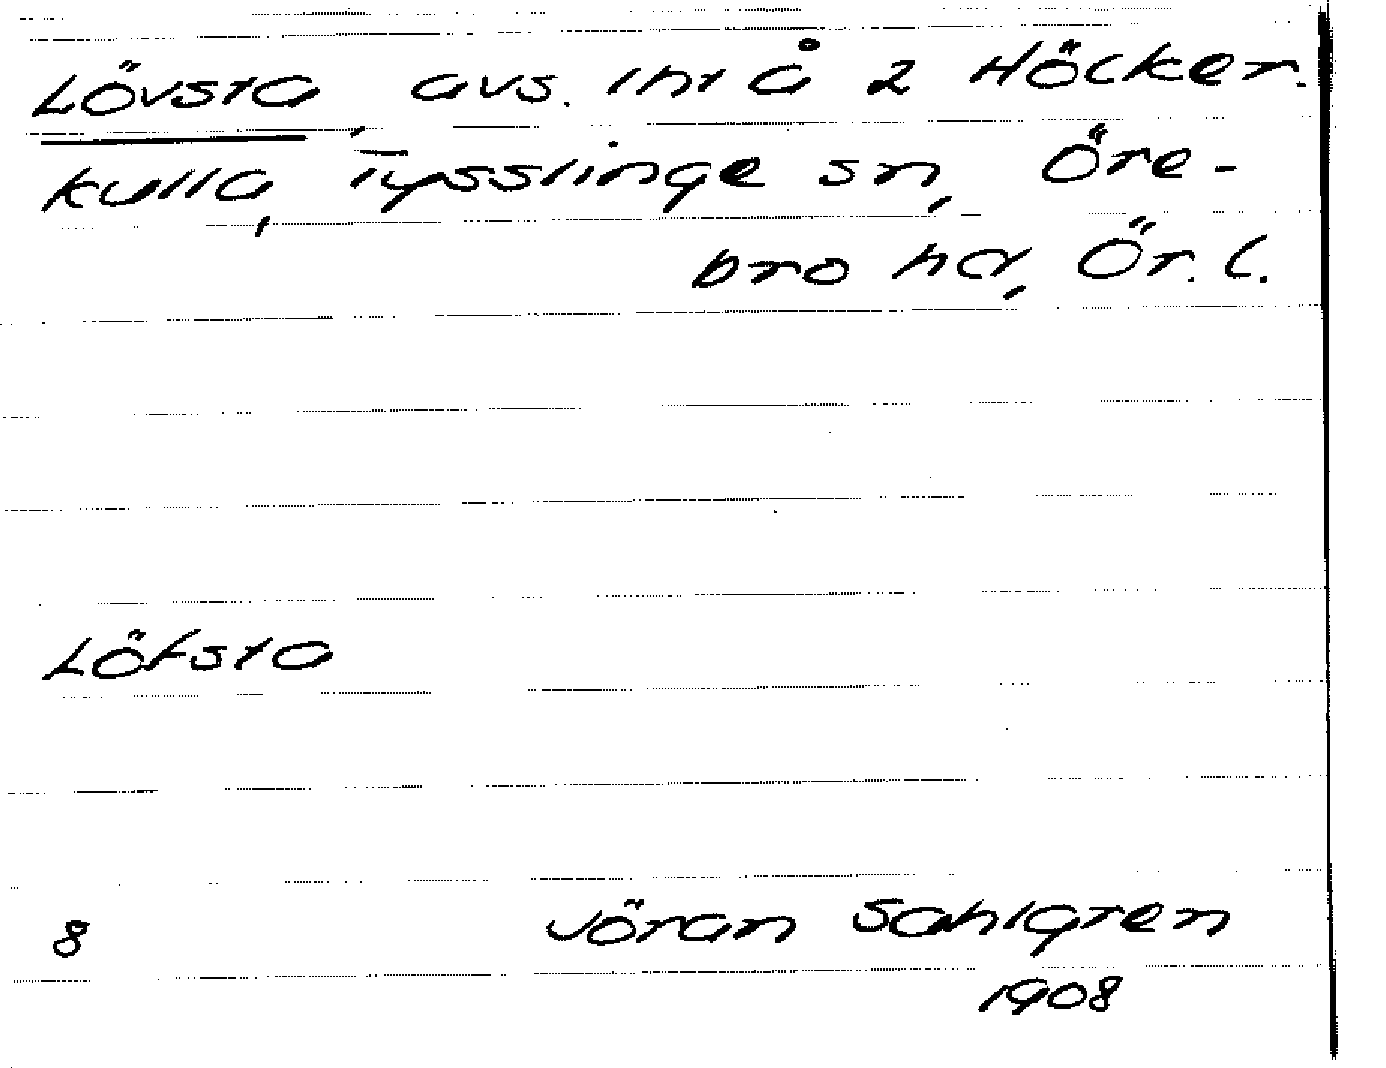 Lövsta avs. int å 2 Höcker-
kulla, Tysslinge sn, Öre-
bro hd, Ör. l.
Löfsta
8 Jöran Sahlgren
1908